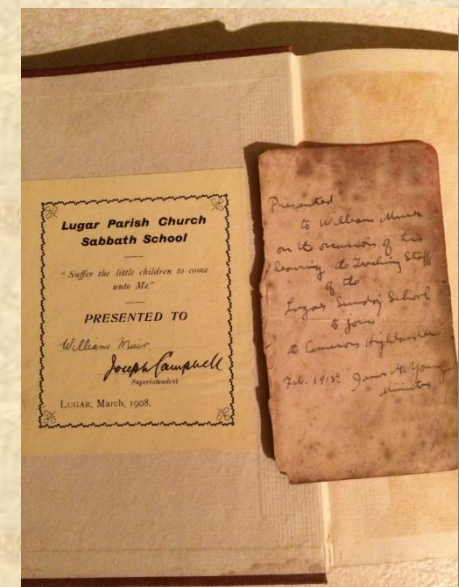 Lugar Parish Church
Sabbath School
"Suffer the little children to come
unto Me."
PRESENTED TO
William Muir
Joseph Campbell
Superintendent
LUGAR, March, 1908.
Presented
to William Muir
on the occasion of his
leaving the Teaching Staff
of the
Lugar Sunday School
to join
the Cameron Highlanders
Feb. 1915. James M. Young
Minister